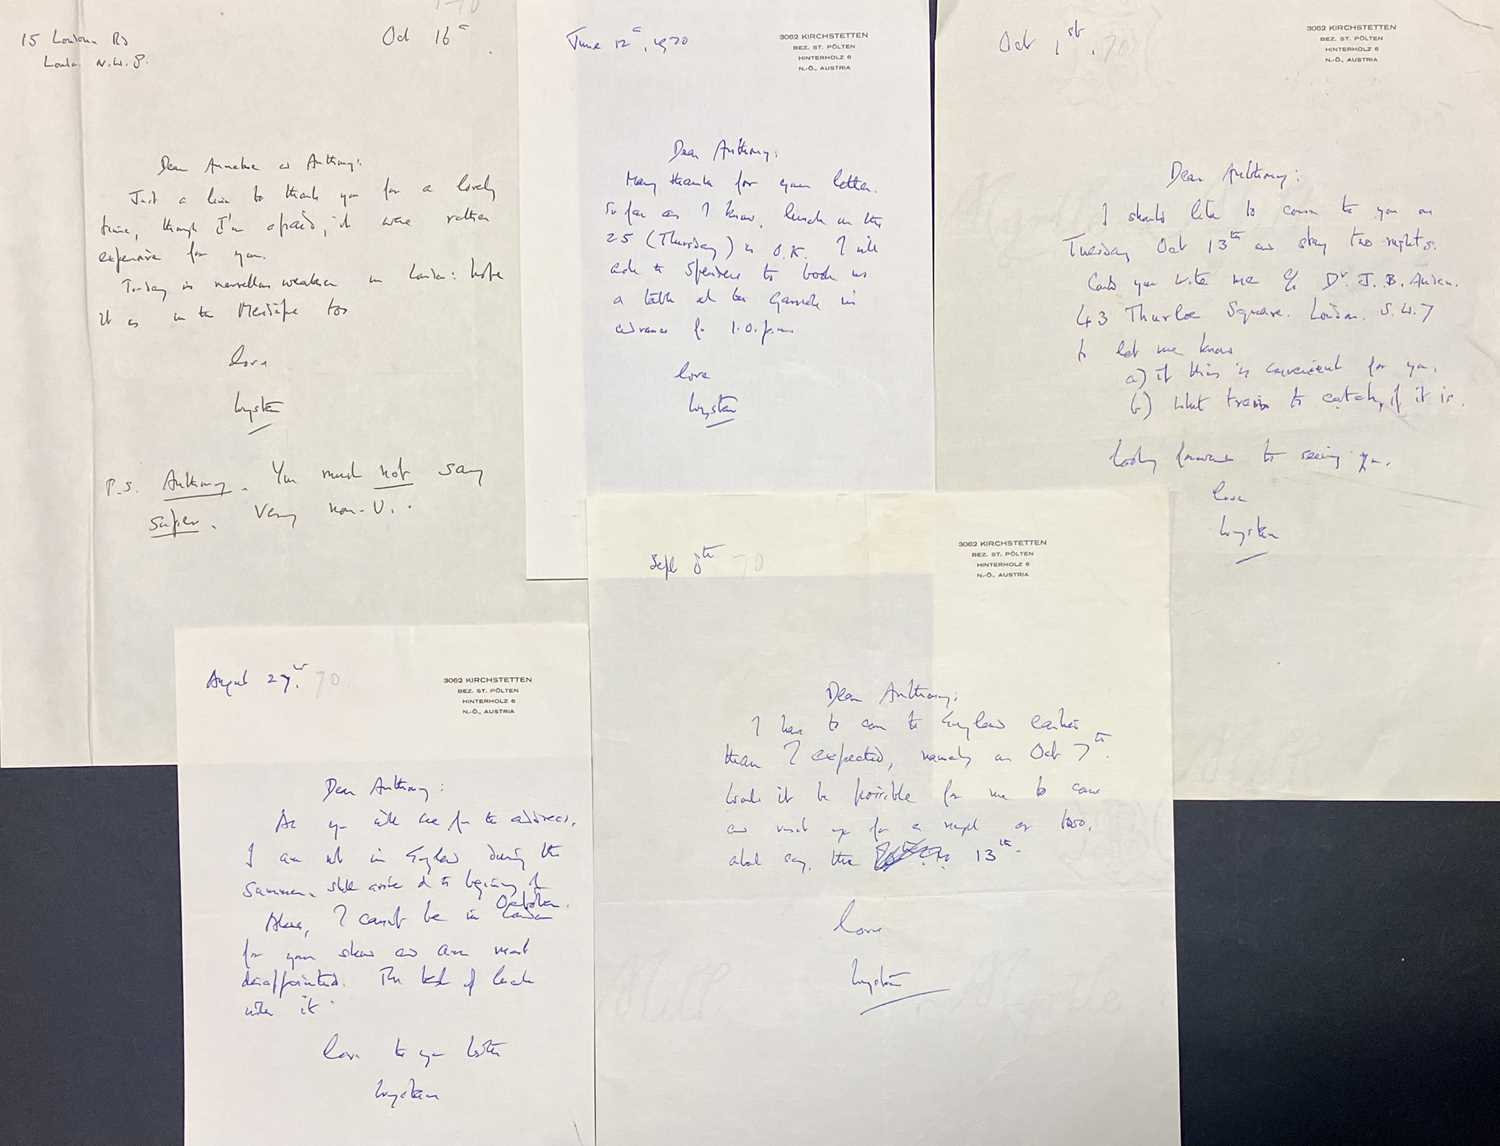 15 Loudoun Rd
London N.W.8.
Oct 16th
Dear Annelise and Anthony:
Just a line to thank you for a lovely
time, though I'm afraid, it was rather
expensive for you.
Today is marvellous weather in London: hope
it is in the too
love
Wystan
P.S. Anthony. You must not say
super. Very non-U.
June 12th, 1970
3062 KIRCHSTETTEN
BEZ. ST. PÖLTEN
HINTERHOLZ 6
N.-Ö., AUSTRIA
Dear Anthony:
Many thanks for your letter.
So far as I know, lunch on the
25 (Thursday) is O.K. I will
ask the Spenders to book us
a table at the Garrick in
advance for 1.0. p.m.
love
Wystan
Oct 1st. 70
3062 KIRCHSTETTEN
BEZ. ST. PÖLTEN
HINTERHOLZ 6
N.-Ö., AUSTRIA
Dear Anthony:
I should like to come to you on
Tuesday Oct 13th and stay two nights.
Could you write me c/o Dr. J. B. Auden.
43 Thurloe Square. London. S.W.7
to let me know
a) if this is convenient for you.
b) what train to catch, if it is.
Looking forward to seeing you.
love
Wystan
August 27th. 70
3062 KIRCHSTETTEN
BEZ. ST. PÖLTEN
HINTERHOLZ 6
N.-Ö., AUSTRIA
Dear Anthony:
As you will see from the address,
I am not in England during the
Summer. Shall arrive at the beginning of
October.
Alas, I can't be in London
for your show and am most
disappointed. The best of luck
with it.
Love to you both
Wystan
Sept 8th 70
3062 KIRCHSTETTEN
BEZ. ST. PÖLTEN
HINTERHOLZ 6
N.-Ö., AUSTRIA
Dear Anthony:
I have to come to England earlier
than I expected, namely on Oct 7th.
Would it be possible for me to come
and visit you for a night or two,
about say, the 13th.
love
Wystan